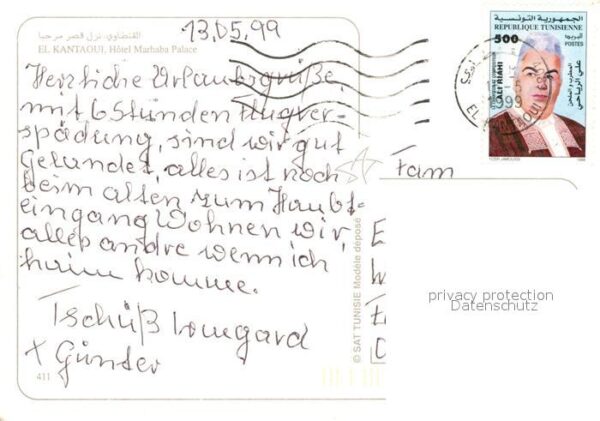 13.05.99
القنطاوي، نزل قصر مرحبا
EL KANTAOUI, Hôtel Marhaba Palace
Herzliche Urlaubsgrüße,
mit 6 Stunden Flugver-
spädung, sind wir gut
Gelandet, alles ist noch
beim alten zum Haubt-
eingang Wohnen wir,
alles andre wenn ich
heim komme.
Tschüß Irmgard
+ Günter
411
© SAT TUNISIE Modèle déposé
Fam
الجمهورية التونسية
REPUBLIQUE TUNISIENNE
500
POSTES
ALI RIAHI
علي الرياحي
1999
EL KANTAOUI
privacy protection
Datenschutz